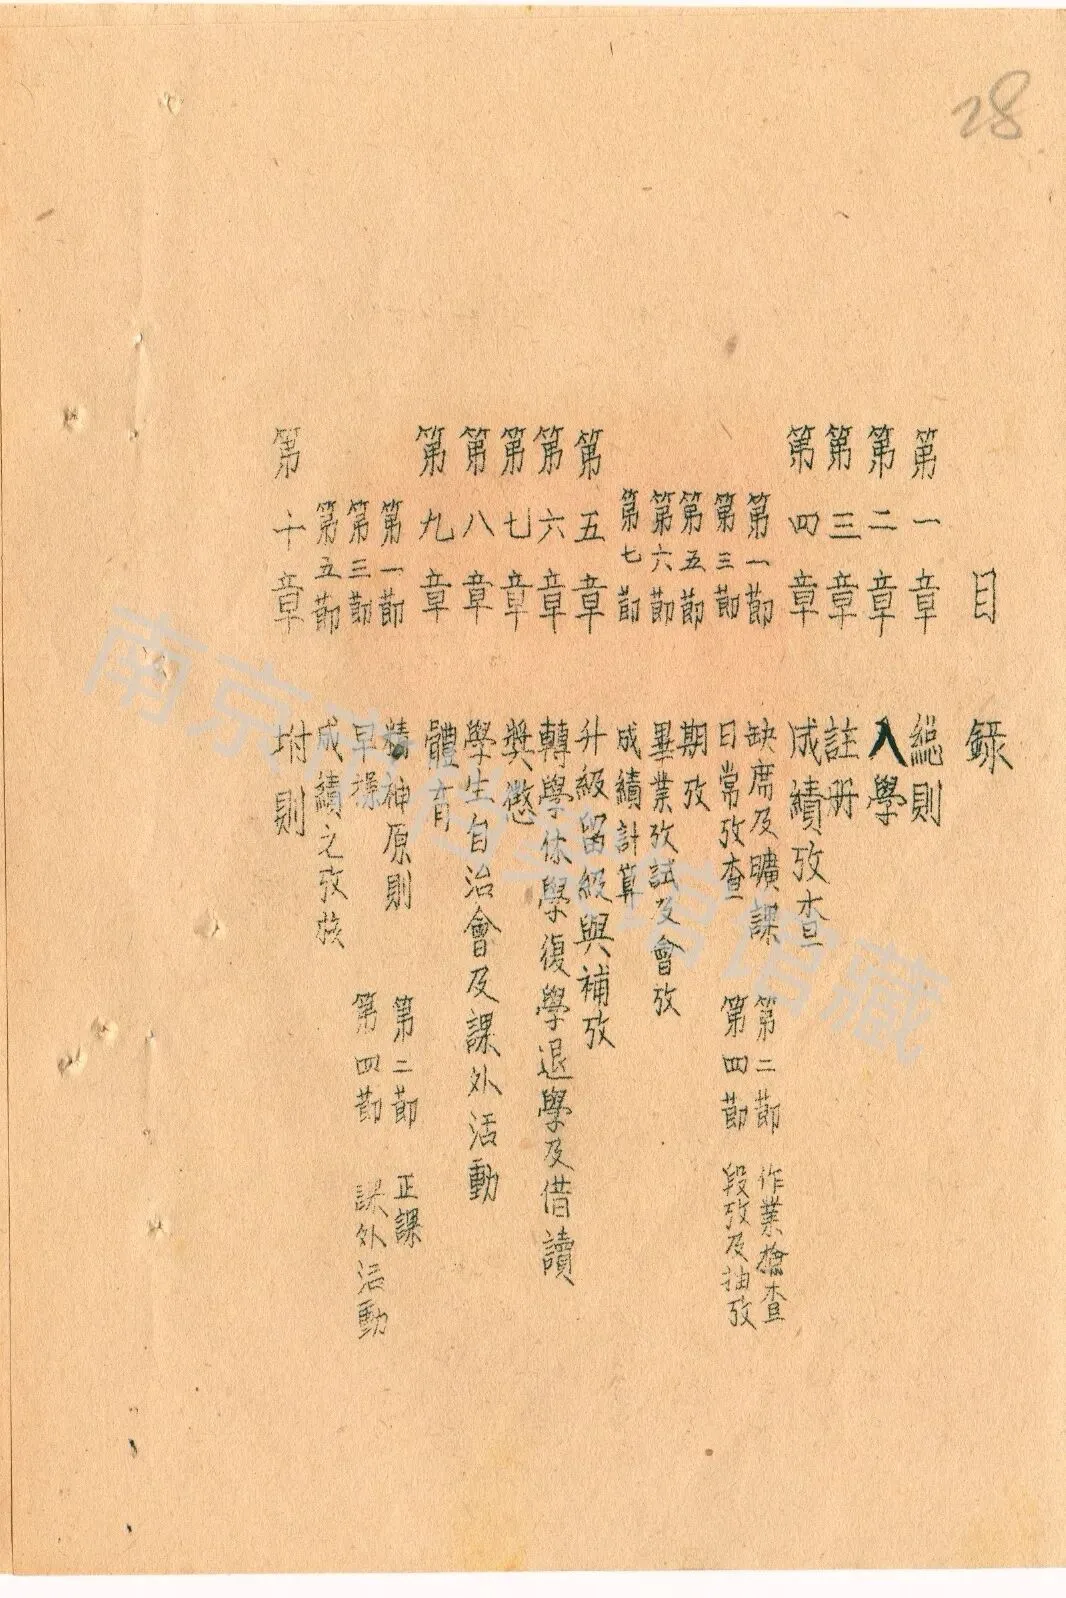 28
目錄
第一章 總則
第二章 入學
第三章 註册
第四章 成績攷查
第一節 缺席及曠課 第二節 作業檢查
第三節 日常攷查 第四節 段攷及抽攷
第五節 期攷
第六節 畢業攷試及會攷
第七節 成績計算
第五章 升級留級與補攷
第六章 轉學休學復學退學及借讀
第七章 獎懲
第八章 學生自治會及課外活動
第九章 體育
第一節 精神原則 第二節 正課
第三節 早操 第四節 課外活動
第五節 成績之攷核
第十章 坿則
南京 館藏